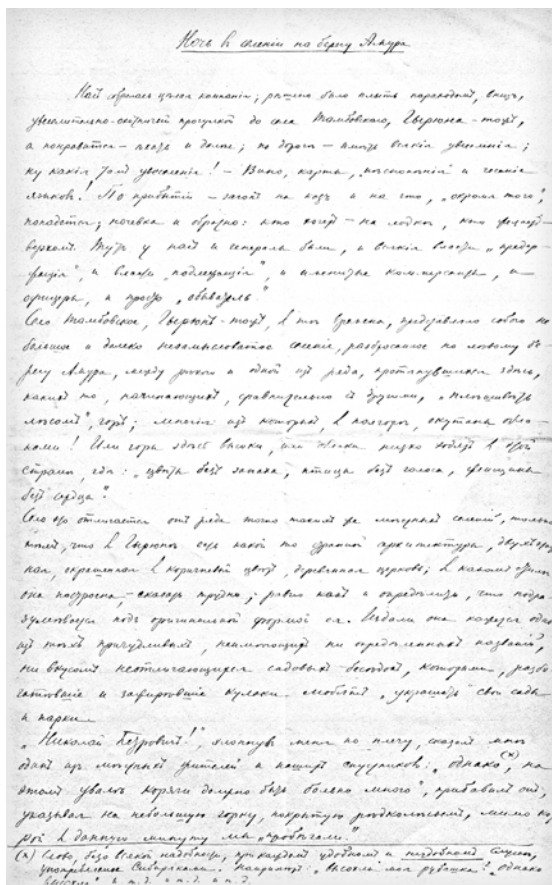 Ночь въ селеніи на берегу Амура
Насъ собралась цѣлая компанія; рѣшено было плыть пароходомъ, въ видѣ,
увеселительно-охотничей прогулки до села Тамбовскаго,
а понравится - и далѣе; по дорогѣ - всякія увеселенія;
ну какія тамъ увеселенія! - Вино, карты, и чесаніе
языковъ! По прибытіи - на козъ и на что, "окромя того",
попадется; ночевка и образно: кто хочетъ - на лодкѣ, кто
верхомъ. Тутъ у насъ и генералы были, и всякія власти "предер-
жащія", и власти "подлежащія", и именитые коммерсанты, и
офицеры, и просто "обыватель".
Село Тамбовское, въ тѣ времена, представляло собою не
большое и далеко незамысловатое селеніе, разбросанное по лѣвому бе-
регу Амура, между рѣкою и одной изъ ряда, протянувшихся здѣсь,
какихъ то, начинающихъ, сравнительно съ другими,
лѣсомъ", горъ; многія изъ которыхъ, въ полгоры, окутаны обла-
ками! Или горы здѣсь высоки, или облака низко ходятъ въ этой
странѣ, гдѣ: "цвѣты безъ запаха, птицы безъ голоса, женщины
безъ сердца".
Село это отличается отъ ряда точно такихъ же селеній, только
тѣмъ, что въ есть какой то странной архитектуры,
окрашенная въ коричневый цвѣтъ, деревянная церковь; въ какомъ стилѣ
она построена - сказать трудно; равно какъ и опредѣлить, что подра-
зумѣвается подъ оригинальной формой ея. Издали она кажется одной
изъ тѣхъ причудливыхъ, неимѣющихъ ни опредѣленныхъ названій,
ни вкусомъ неотличающихся садовыхъ бесѣдокъ, которыми, разбо-
гатѣвшіе и кулаки любятъ "украшать" свои сады
и парки.
"Николай Петровичъ!", хлопнувъ меня по плечу, сказалъ мнѣ
одинъ изъ мѣстныхъ жителей и нашихъ спутниковъ: "однако (х), на
этомъ увалѣ должно быть болѣно много", прибавилъ онъ,
указывая на небольшую горку, покрытую, мимо ко-
рой въ данную минуту мы "пробѣгали."
(х) Слово, безо всякой надобности, при каждомъ удобномъ и неудобномъ случаѣ,
употребляемое Сибиряками. Напримѣръ: моя рубашка? однако
и т.д. и т.д. и т.д.